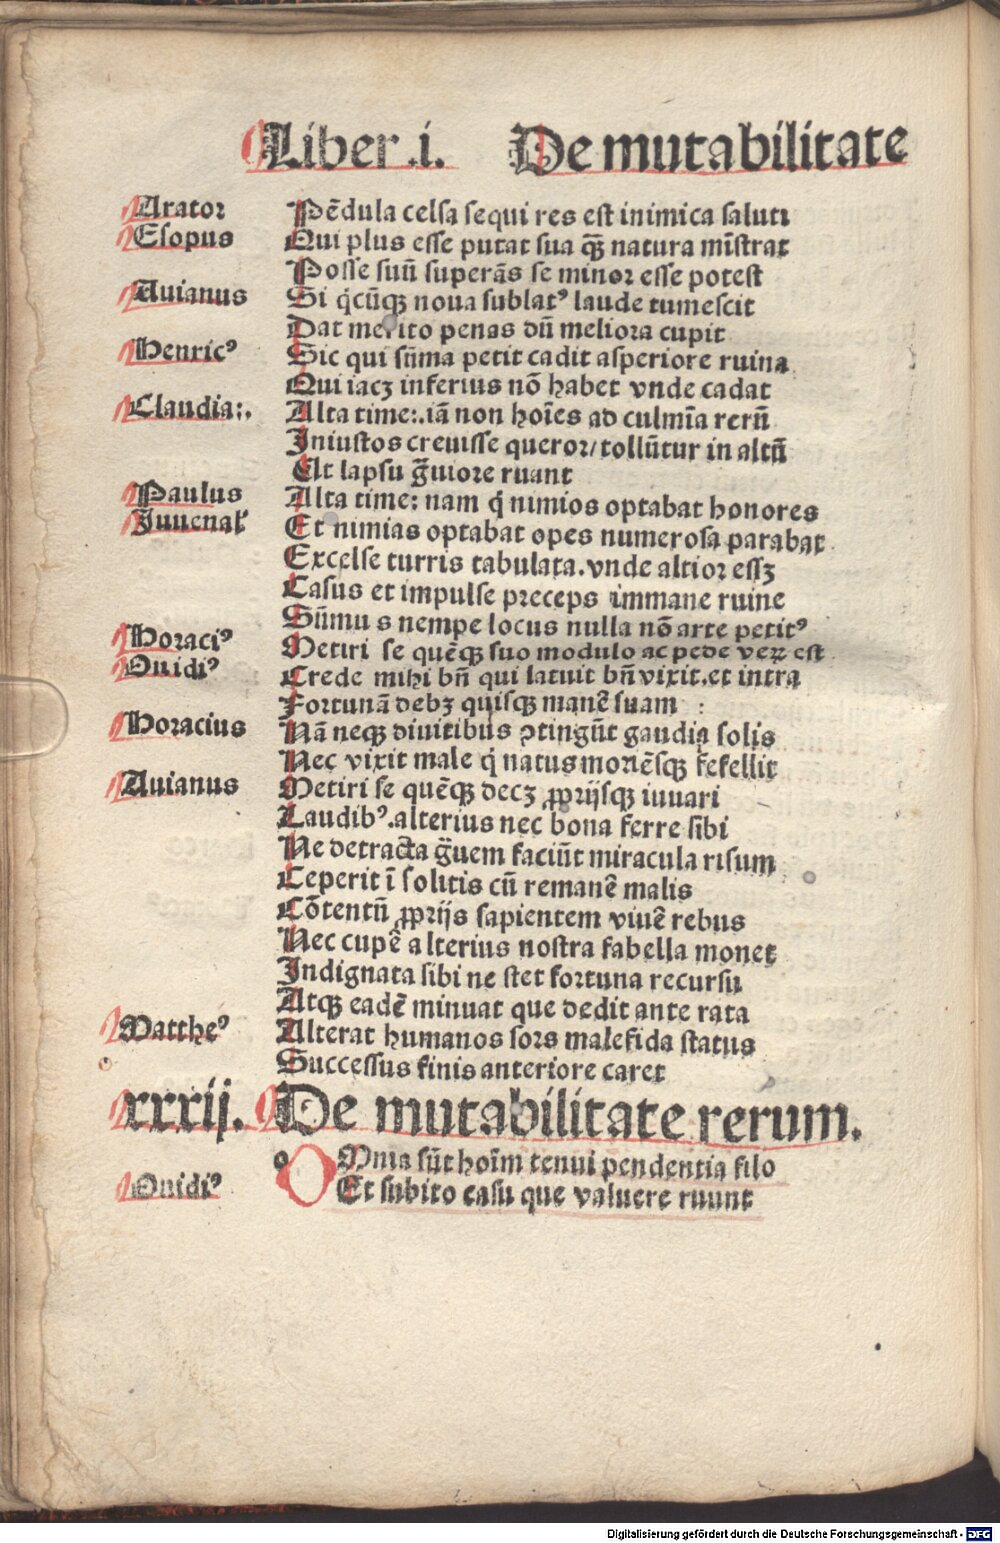 Liber .i. De mutabilitate
Arator Pēdula celsa sequi res est inimica saluti
Esopus Qui plus esse putat sua q̄ꝫ natura mīstrat
Posse suū superās se minor esse potest
Auianus Si q̇cūqꝫ noua sublatꝰ laude tumescit
Dat merito penas dū meliora cupit
Henricꝰ Sic qui sūma petit cadit asperiore ruina
Qui iacꝫ inferius nō habet vnde cadat
Claudia:. Alta time:.iā non hoīes ad culmīa rerū
Iniustos creuisse queror/tollūtur in altū
Ut lapsu ḡuiore ruant
Paulus Alta time: nam q̇ nimios optabat honores
Iuuenal' Et nimias optabat opes numerosa parabat
Excelse turris tabulata.vnde altior essꝫ
Casus et impulse preceps immane ruine
Sūmus nempe locus nulla nō arte petitꝰ
Horaciꝰ Metiri se quēqꝫ suo modulo ac pede veꝝ est
Ouidiꝰ Crede mihi bn̄ qui latuit bn̄ vixit.et intra
Fortunā debꝫ quisqꝫ manē suam :
Horacius Nā neqꝫ diuitibus ꝯtingūt gaudia solis
Nec vixit male q̇ natus moriēsqꝫ fefellit
Auianus Metiri se quēqꝫ decꝫ ꝓprijsqꝫ iuuari
Laudibꝰ.alterius nec bona ferre sibi
Ne detracta ḡuem faciūt miracula risum
Ceperit ī solitis cū remanē malis
Cōtentū ꝓprijs sapientem viuē rebus
Nec cupē alterius nostra fabella monet
Indignata sibi ne stet fortuna recursu
Atqꝫ eadē minuat que dedit ante rata
Mattheꝰ Alterat humanos sors malefida status
Successus finis anteriore caret
xxxij. De mutabilitate rerum.
o Mnia sūt hoīm tenui pendentia filo
Ouidiꝰ Et subito casu que valuere ruunt
Digitalisierung gefördert durch die Deutsche Forschungsgemeinschaft - DFG